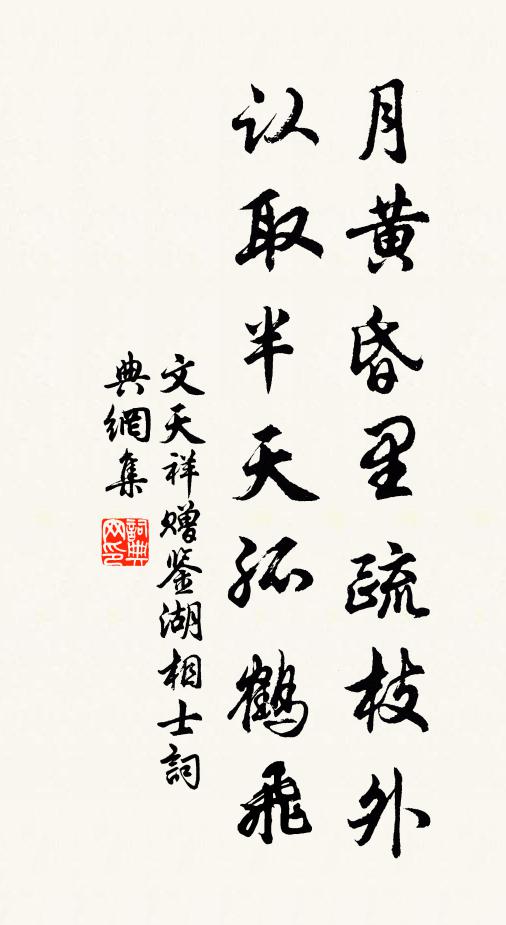 月黄昏里疏枝外
认取半天孤鹤飞
文天祥赠鉴湖相士詞
典網集
詞典
网印